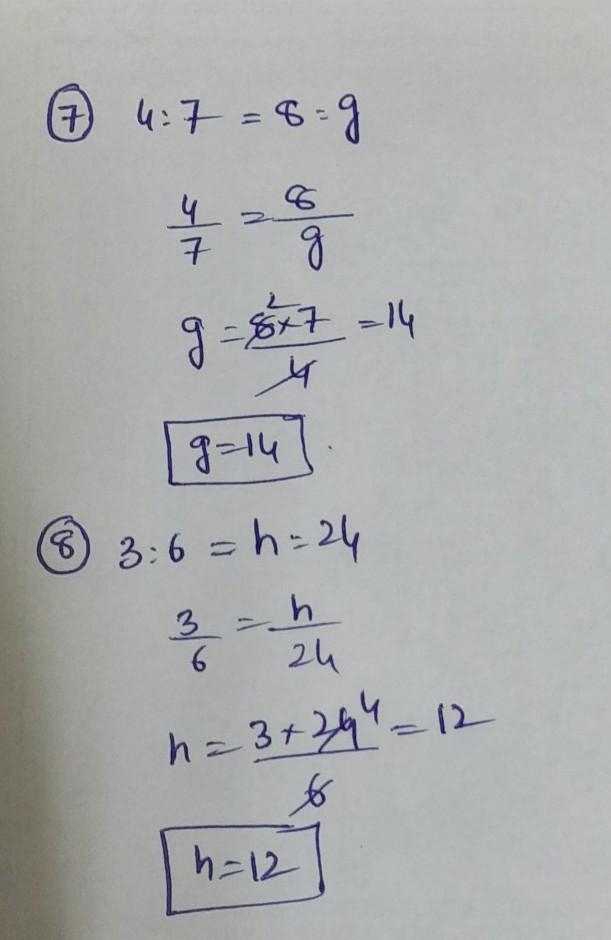 ⑦ 4:7 = 8:g
4/7 = 8/g
g = 8×7/4 2 = 14
g=14
⑧ 3:6 = h:24
3/6 = h/24
h = 3+24/6 4 = 12
h=12